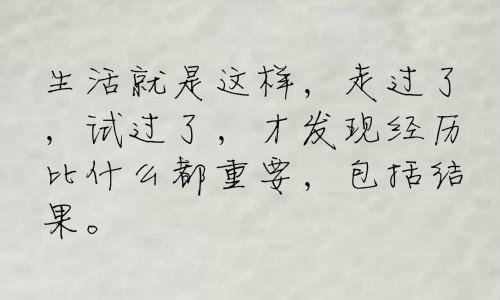 生活就是这样，走过了
，试过了，才发现经历
比什么都重要，包括结
果。